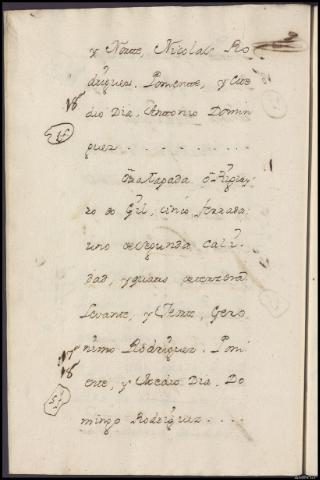 y Norte, Nicolas Ro
driguez. Poniente, y Me
dio Dia, Antonio Domin
guez . . . . . . . . . .
Otra Tapada
ro do Gil, cinco ferrada
uno de segunda cali
dad, y quatro de terzera
Levante, y Norte, Gero
nimo Rodriguez. Poni
ente, y Medio Dia, Do
mingo Rodriguez . . . .